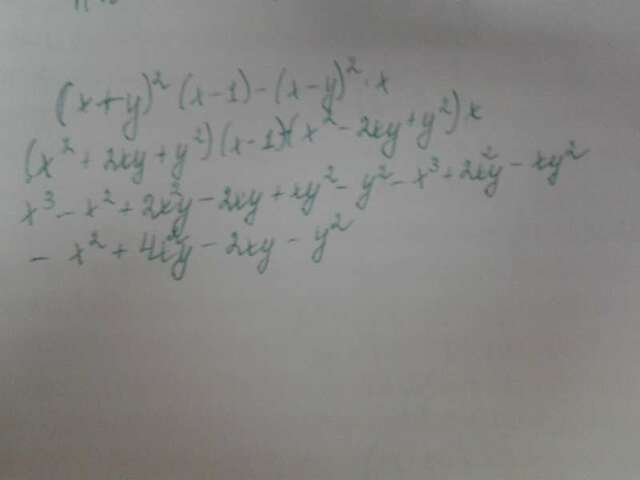 (x+y)² (x-1) - (x-y)² · x
(x² + 2xy + y²)(x-1)-(x² - 2xy + y²) x
x³ - x² + 2x²y - 2xy + xy² - y² - x³ + 2x²y - xy²
- x² + 4x²y - 2xy - y²